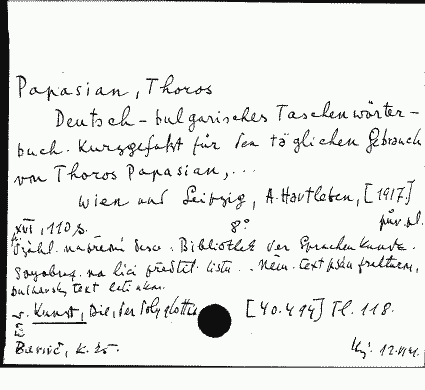 Papasian, Thoros
Deutsch-bulgarisches Taschenwörter-
buch. Kurzgefaßt für den täglichen Gebrauch
von Thoros Papasian,...
Wien und Leipzig, A. Hartleben, [1917.]
XVI, 110 s. 8° pův. pl.
Bibliothek der Sprachenkunde.
na líci předtit. listu. Něm. text psán frakturou,
bulharský text
v. Kunst, Die, der Polyglottie [40.494] Tl. 118.
K. 25. 12.